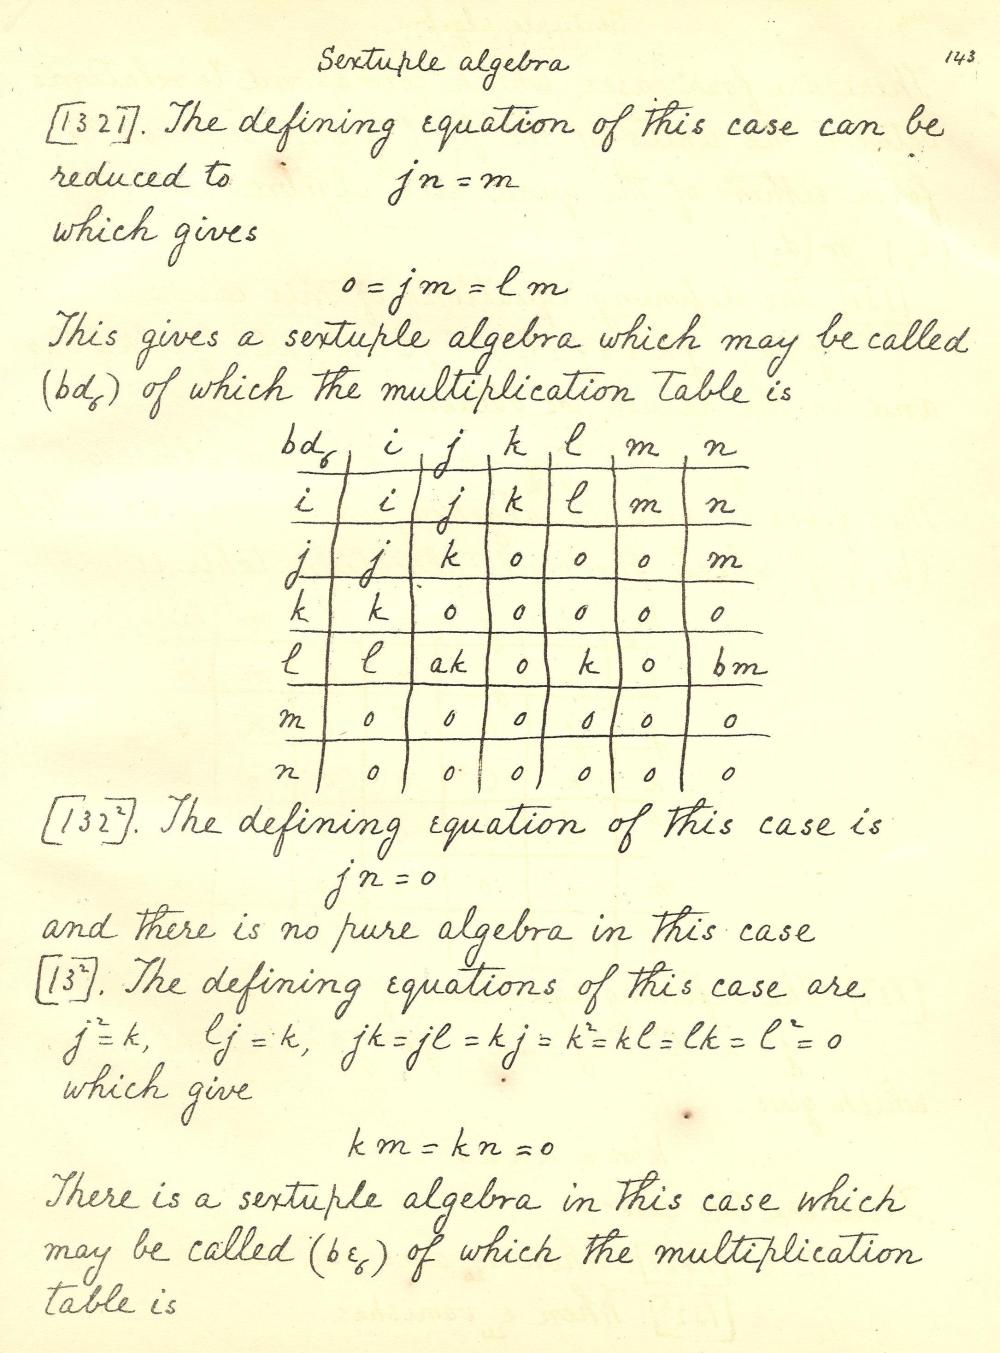 Sextuple algebra 143
[1321]. The defining equation of this case can be
reduced to jn = m
which gives
0 = jm = lm
This gives a sextuple algebra which may be called
(bd₆) of which the multiplication table is
bd₆ i j k l m n
i i j k l m n
j j k 0 0 0 m
k k 0 0 0 0 0
l l ak 0 k 0 bm
m 0 0 0 0 0 0
n 0 0 0 0 0 0
[132²]. The defining equation of this case is
jn = 0
and there is no pure algebra in this case
[13²]. The defining equations of this case are
j² = k, lj = k, jk = jl = kj = k² = kl = lk = l² = 0
which give
km = kn = 0
There is a sextuple algebra in this case which
may be called (bε₆) of which the multiplication
table is